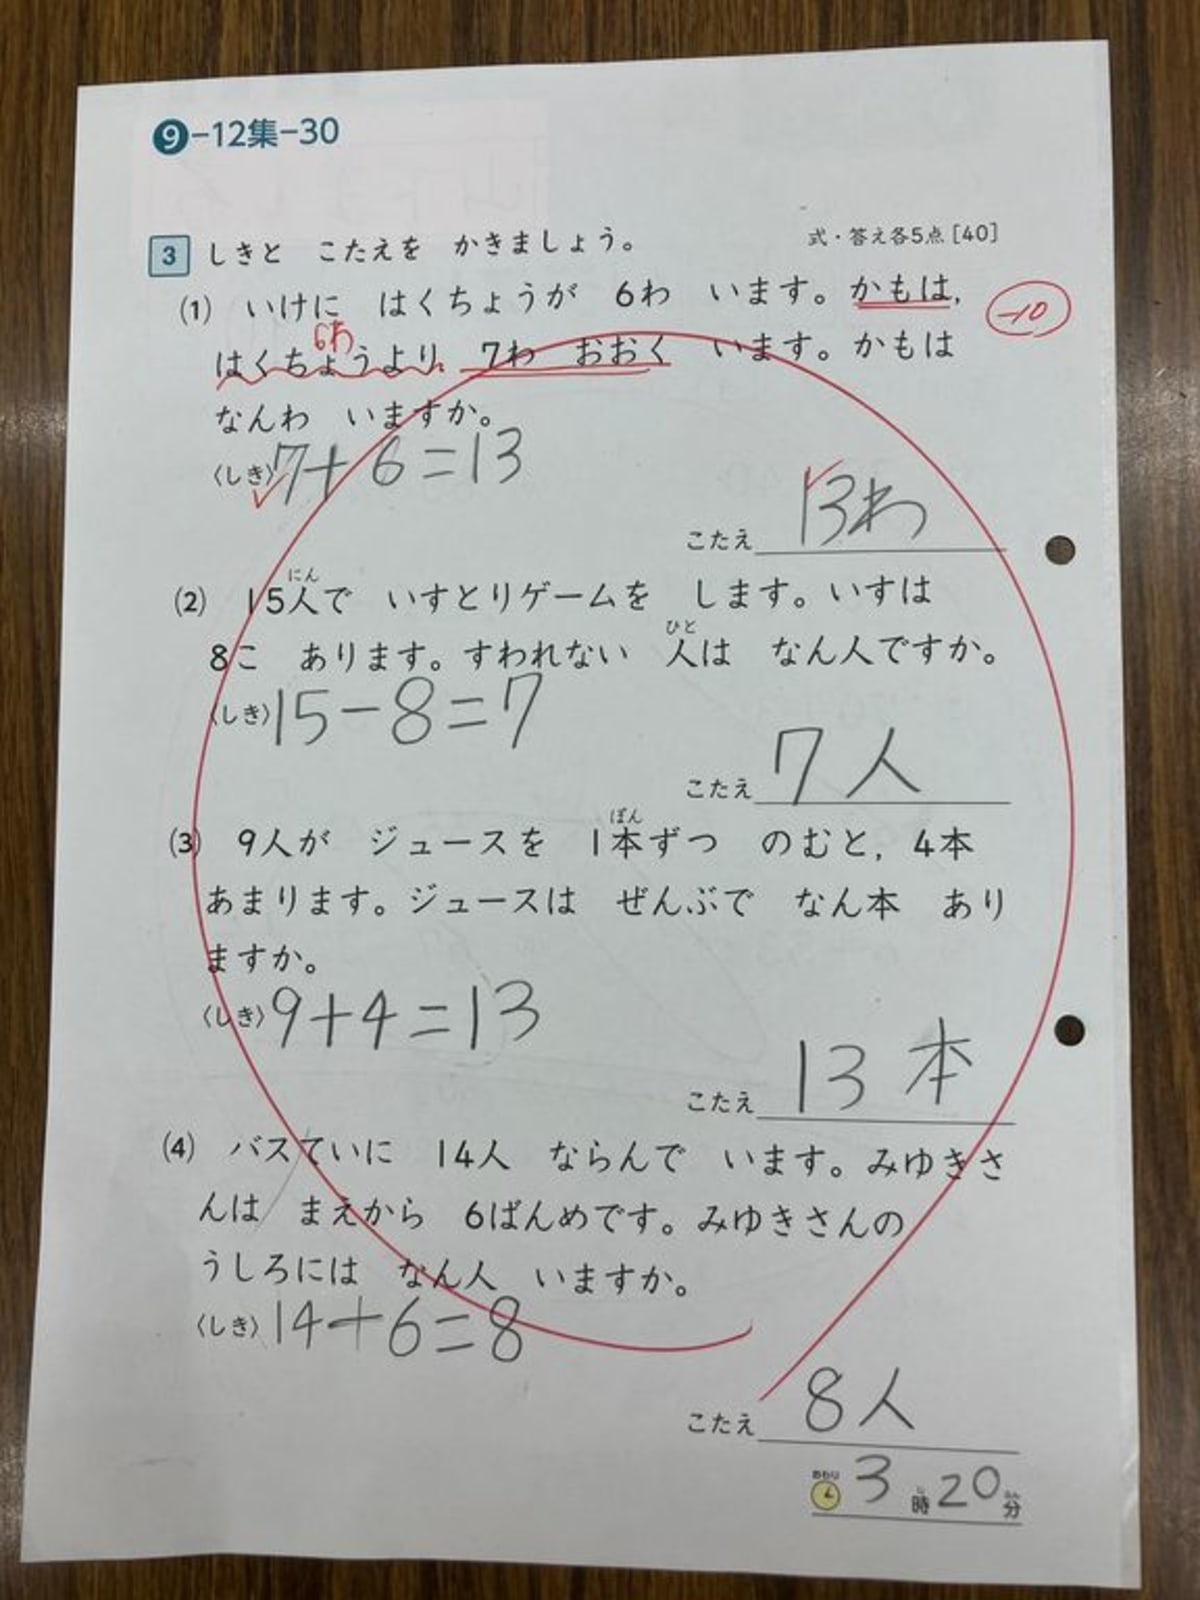 9-12集-30
3 しきと こたえを かきましょう。
式・答え各5点[40]
(1) いけに はくちょうが 6わ います。かもは,
-10
6わ
はくちょうより, 7わ おおく います。かもは
なんわ いますか。
〈しき〉7+6=13
こたえ 13わ
にん
(2) 15人で いすとりゲームを します。いすは
ひと
8こ あります。すわれない 人は なん人ですか。
〈しき〉15-8=7
こたえ 7人
ぽん
(3) 9人が ジュースを 1本ずつ のむと, 4本
あまります。ジュースは ぜんぶで なん本 あり
ますか。
〈しき〉9+4=13
こたえ 13本
(4) バスていに 14人 ならんで います。みゆきさ
んは まえから 6ばんめです。みゆきさんの
うしろには なん人 いますか。
〈しき〉14+6=8
こたえ 8人
おわり
3時20分